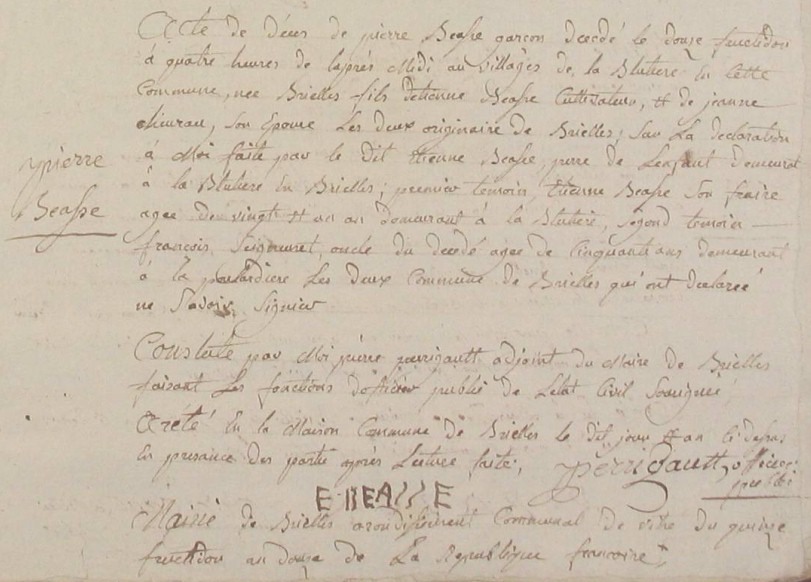 Acte de décès de pierre Beasse garçon decedé le douze fructidon
à quatre heures de laprés Midi au villâges de la Blutiere En Cette
Commune, nee Brielles fils detienne Beasse Cultivateur, et de jeanne
son Epouse Les deux originaire de Brielles; Sur La declaration
à Moi faite par le dit Etienne Beasse, perre de Lenfant demeurat
pierre
à la Blutiere En Brielles; premier temoin, Etienne Beasse Son fraire
Beasse
agee de vingt et un an demeurant à la Blutiere, segond temoin
francois oncle du decedé agee de Cinquant ans demeurant
a la Les deux Commune de Brielles qui ont declareé
ne Savoir Signier
Constaté par Moi pierre perrigault adjoint du Maire de Brielles
faisant Les fonctions dofficier public de Letat Civil Sousigneé
Areté En la Maison Commune de Brielles le dit jour et an Ci depus
En presance des partie apres Lecture faite, perrigault officier
public
E BEASSE
Mairie de Brielles arondissement Communal de vitre du quinze
fructidon an douze de La Republique francoise